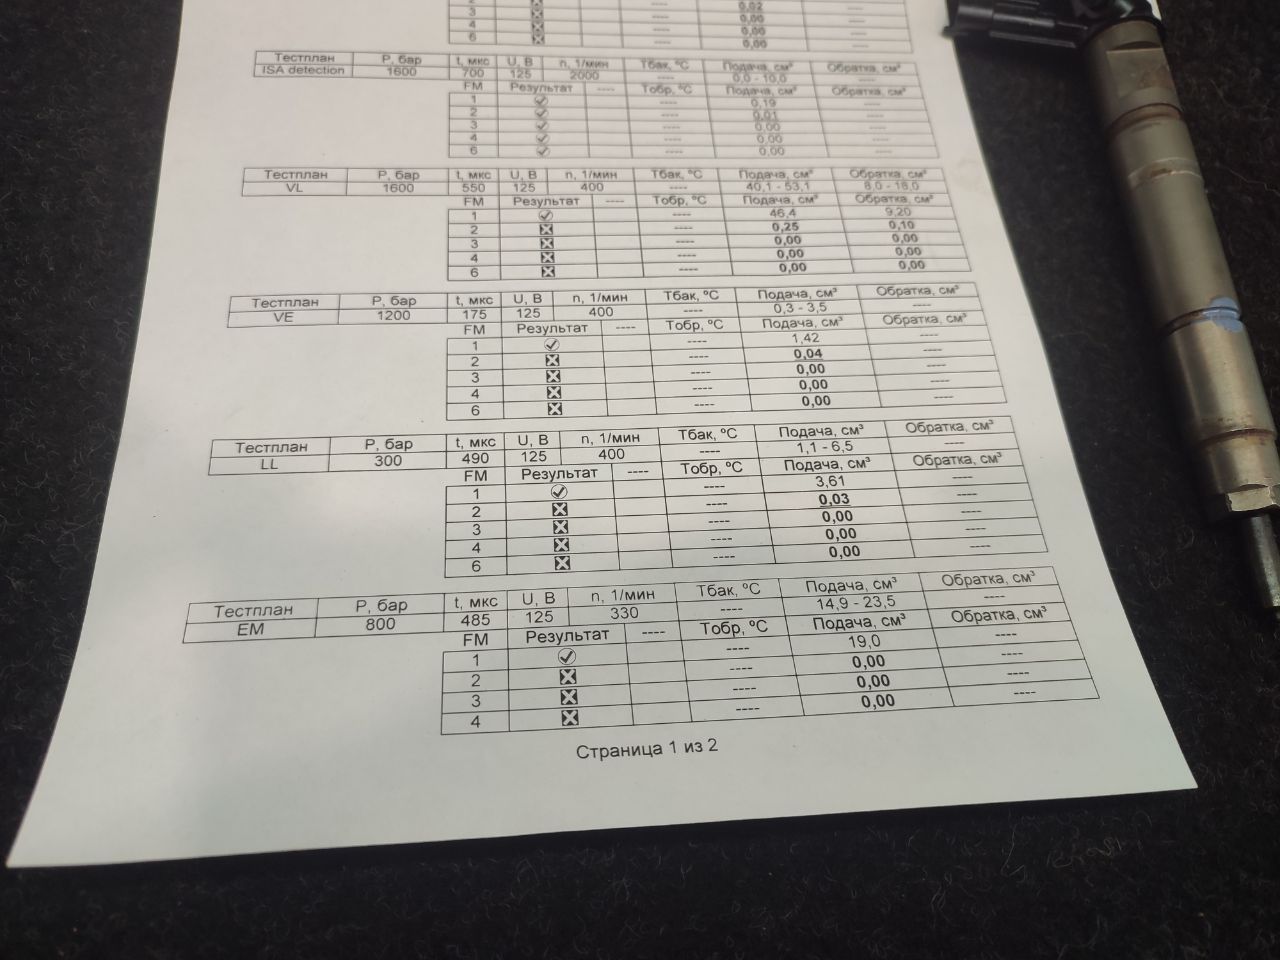 2 ---- 0,02 ----
3 ---- 0,00 ----
4 ---- 0,00 ----
6 ---- 0,00 ----
Тестплан P, бар t, мкс U, В n, 1/мин Тбак, ºС Подача, см³ Обратка, см³
ISA detection 1600 700 125 2000 ---- 0,0 - 10,0 ----
FM Результат ---- Тобр, ºС Подача, см³ Обратка, см³
1 ---- 0,19 ----
2 ---- 0,01 ----
3 ---- 0,00 ----
4 ---- 0,00 ----
6 ---- 0,00 ----
Тестплан P, бар t, мкс U, В n, 1/мин Тбак, ºС Подача, см³ Обратка, см³
VL 1600 550 125 400 ---- 40,1 - 53,1 8,0 - 18,0
FM Результат ---- Тобр, ºС Подача, см³ Обратка, см³
1 ---- 46,4 9,20
2 ---- 0,25 0,10
3 ---- 0,00 0,00
4 ---- 0,00 0,00
6 ---- 0,00 0,00
Тестплан P, бар t, мкс U, В n, 1/мин Тбак, ºС Подача, см³ Обратка, см³
VE 1200 175 125 400 ---- 0,3 - 3,5 ----
FM Результат ---- Тобр, ºС Подача, см³ Обратка, см³
1 ---- 1,42 ----
2 ---- 0,04 ----
3 ---- 0,00 ----
4 ---- 0,00 ----
6 ---- 0,00 ----
Тестплан P, бар t, мкс U, В n, 1/мин Тбак, ºС Подача, см³ Обратка, см³
LL 300 490 125 400 ---- 1,1 - 6,5 ----
FM Результат ---- Тобр, ºС Подача, см³ Обратка, см³
1 ---- 3,61 ----
2 ---- 0,03 ----
3 ---- 0,00 ----
4 ---- 0,00 ----
6 ---- 0,00 ----
Тестплан P, бар t, мкс U, В n, 1/мин Тбак, ºС Подача, см³ Обратка, см³
EM 800 485 125 330 ---- 14,9 - 23,5 ----
FM Результат ---- Тобр, ºС Подача, см³ Обратка, см³
1 ---- 19,0 ----
2 ---- 0,00 ----
3 ---- 0,00 ----
4 ---- 0,00 ----
Страница 1 из 2